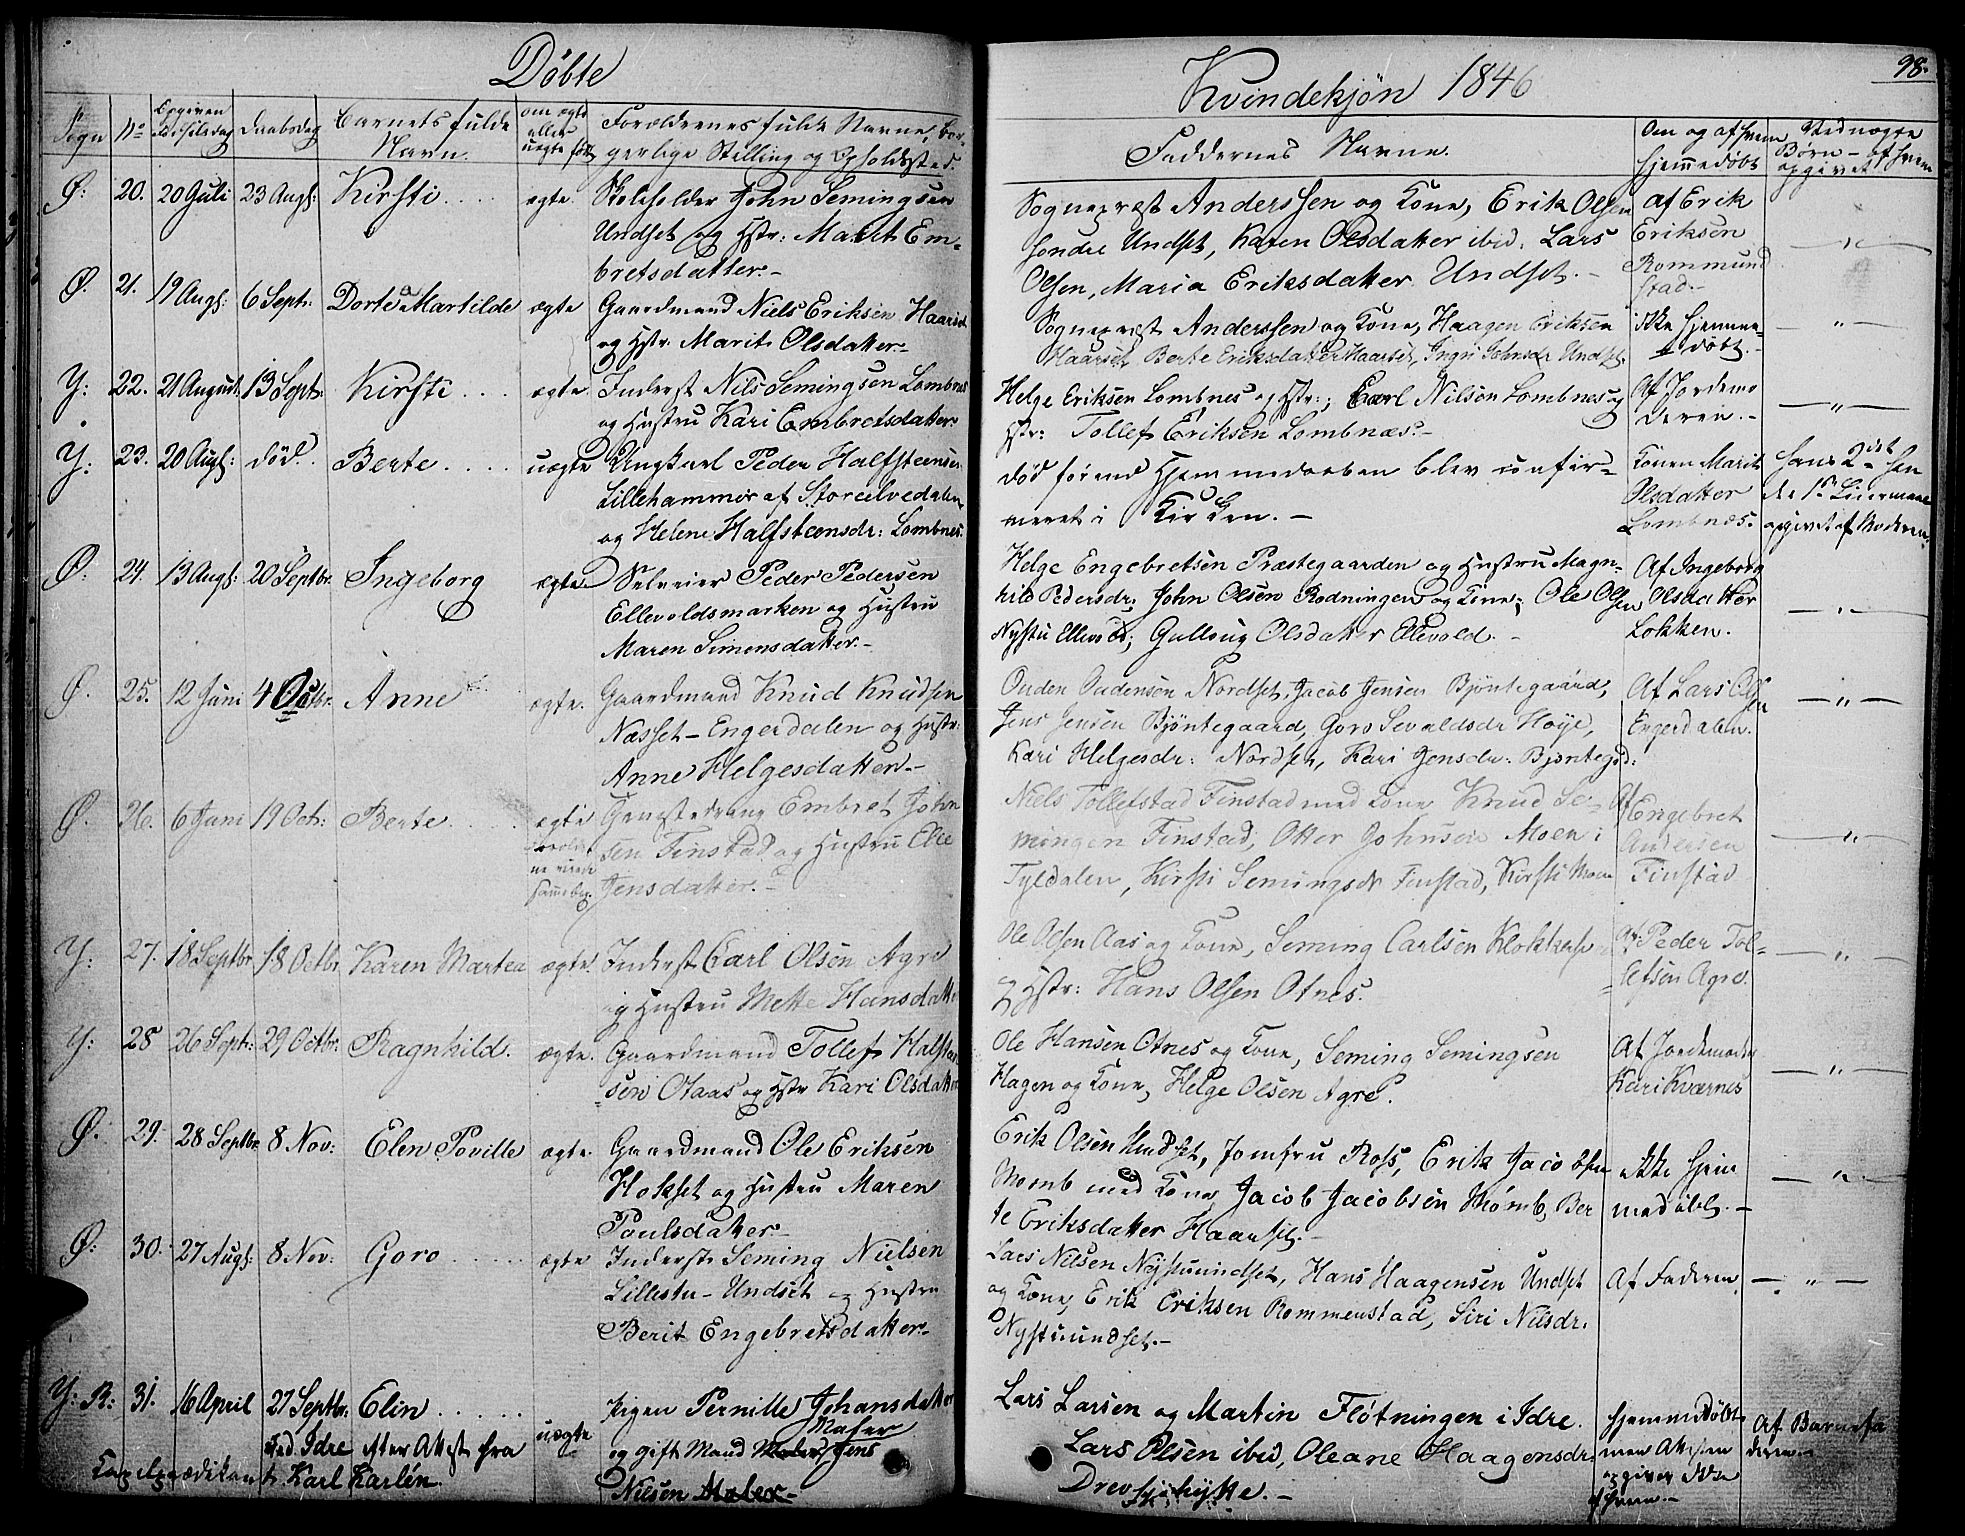 Døbte
Kvindekjön 1846
98.
Sogn No Opgiven Födselsdag Daabsdag Barnets fulde Navn. om ægte eller uægte født Forældrenes fulde Navne, bor-
gerlige Stilling og Opholdsted.
Faddernes Navne.
Om og af hvem hjemmedöbt
Ved uægte Børn – af hvem opgivet
Ø: 20. 20 Juli 23 Augs: Kirsti . . . . ægte. Skoleholder John Semingsen
Undset og Hstr: Marit Em-
bretsdatter.-
Sognepræst Anderssen og Kone, Erik Olsen
söndre Undset, Karen Olsdatter ibid. Lars
Olsen, Maria Eriksdatter Undset. -
af Erik
Eriksen
Rommund
stad.-
Ø. 21. 19 Augs: 6 Septr: Dorte Martilde ægte Gaardmand Niels Eriksen Haarset
og Hstr. Marit Olsdatter.-
Sognepræst Anderssen og Kone, Haagen Eriksen
Haarset, Berte Eriksdatter Haarset, Ingri Johnsdr Undset.
ikke hjemme-
döbt.-
Y: 22. 21 August. 13 Septr: Kirsti . . . ægte Inderst Nils Semingsen Lombnes
og Hustru Kari Embretsdatter.
Helge Eriksen Lombnes og Hstr:; Carl Nilsen Lombnes og
Hstr: Tollef Eriksen Lombnæs.-
Af Jordemo
deren.-
Y: 23. 20 Augs: död. Berte . . . . uægte Ungkarl Peder Halfsteensen
Lillehammer af Storelvedalen
og Helene Halfsteensdr: Lombnes.
död förend Hjemmedaaben blev confir-
meret i Kirken. -
Konen Marit
Olsdatter
Lombnæs.
hans 2det hen
des 1ste Leiermaal
opgivet af Moderen.
Ø: 24. 13 Augs: 20 Septbr. Ingeborg ægte Selveier Peder Pedersen
Ellevoldsmarken og Hustru
Maren Simensdatter.-
Helge Engebretsen Præstegaarden og Hustru Magn-
hild Pedersdr, John Olsen Rodningen og Kone; Ole Olsen
Nystu Ellevold; Gulloug Olsdatter Ellevold. -
Af Ingeborg
Olsdatter
Lokken.
Ø. 25. 12 Juni 4 Octbr. Anne ægte. Gaardmand Knud Knudsen
Næsset-Engerdalen og Hustr:
Anne Helgesdatter.-
Ouden Oudensen Nordset, Jacob Jensen Bjöntegaard,
Jens Jensen Bjöntegaard, Goro Sevaldsdr Höye,
Kari Helgesdr: Nordset, Kari Jensdr: Bjöntegd:
Af Lars Olsen
Engerdalen.
Ø. 26. 6 Juni 19 Octr: Berte . . . . ægte Embret John
sen Finstad og Hustru Elie
Jensdatter.-
Niels Tollefstad Finstad med Kone Knud Se-
mingen Finstad, Otter Johnsen Moen i
Tyldalen, Kirsti Semingsdr Finstad, Kirsti Moen
Af Engebret
Andersen
Finstad
Y: 27. 18 Septbr 18 Octbr Karen Martea ægte. Inderst Carl Olsen Agre
og Hustru Mette Hansdatter
Ole Olsen Aas og Kone, Seming Carlsen Klokkers
og Hstr: Hans Olsen Otnes.
Af Peder Tol-
lefsen Agre.
Y: 28 26 Septr: 29 Octbr. Ragnhild. ægte. Gaardmand Tollef Halfsteen
sen Otaas og Hstr Kari Olsdatter
Ole Hansen Otnes og Kone, Seming Semingsen
Hagen og Kone, Helge Olsen Agre.
Af Jordemoder
Kari Kværnes
Ø: 29. 28 Septbr. 8 Nov: Elen Poville ægte. Gaardmand Ole Eriksen
Hokset og Hustru Maren
Poulsdatter.-
Erik Olsen Undset, Jomfru Ross, Erik Jacobsen
Momb med Kone, Jacob Jacobsen Momb, Ber
te Eriksdatter Haarset.-
ikke hjem
medöbt.-
Ø: 30. 27 Augs: 8 Nov: Goro . . . . ægte Inderst Seming Nielsen
Lillestu-Undset og Hustru
Berit Engebretsdatter.-
Lars Nilsen Nystuundset, Hans Haagensen Undset
og Kone, Erik Eriksen Rommenstad, Siri Nilsdr.
Nystuundset.-
Af Faderen
Y: R: 31. 16 April 27 Septbr: Elin . . . . . uægte Pigen Pernille Johansdatter
ved Idre efter Attest fra og gift Mand Jens
Capelprædikant Karl Karlén. Nilsen
Lars Larsen og Martin Flötningen i Idre.
Lars Olsen ibid, Oleane Haagensdr:
Drevsjöhytte.-
hjemmedöbt
men Attesten
opgiver ikke
af hvem.-
Af Barnefa
deren